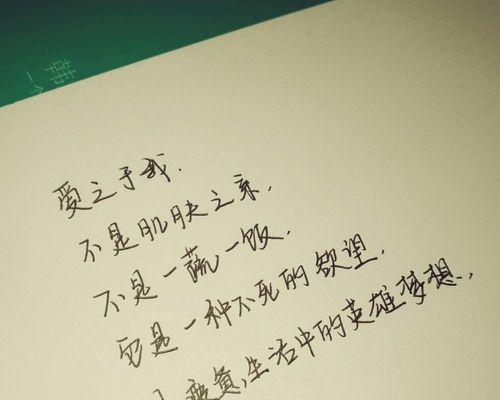 韩
一个
爱之于我.
不是肌肤之亲,
不是一蔬一饭.
它是一种不死的欲望.
疲惫生活中的英雄梦想.,